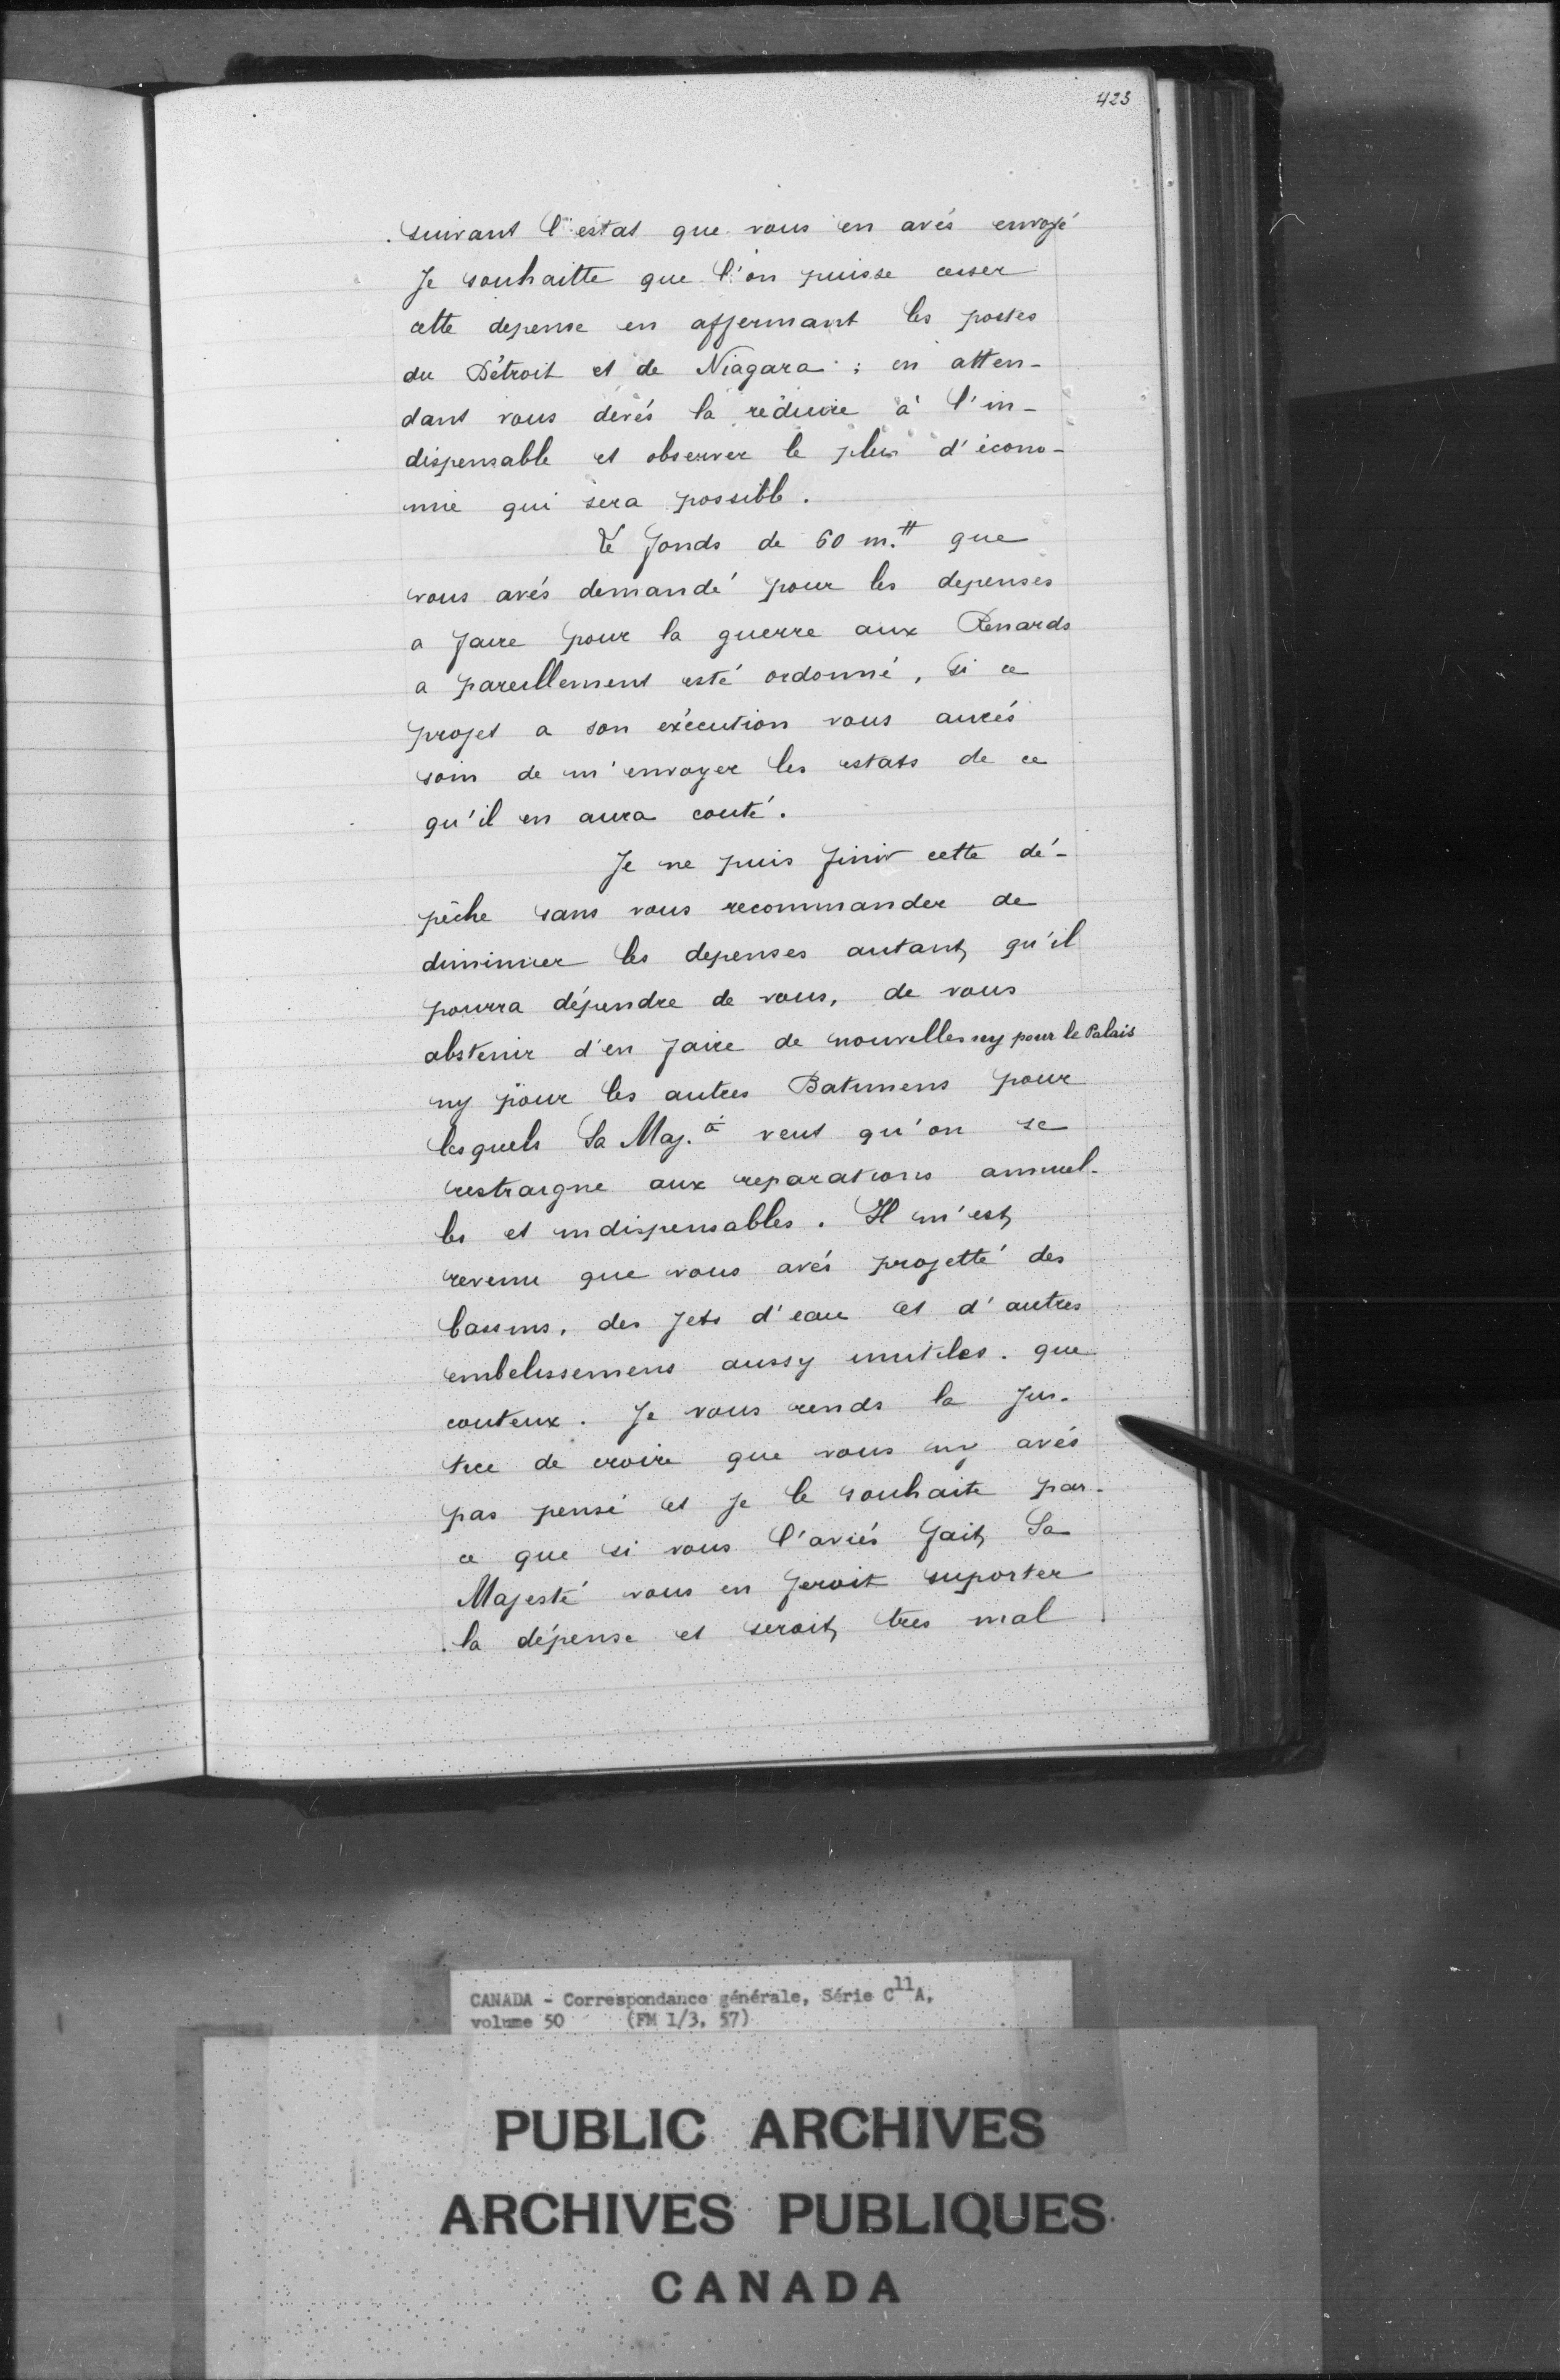 423
suivant l'estat que vous en avés envoyé
Je souhaitte que l'on puisse cesser
cette depense en affermant les postes
du Détroit et de Niagara ; en atten-
dant vous devés la réduire à l'in-
dispensable et observer le plus d'écono-
mie qui sera possible.
Le fonds de 60 m.tt que
vous avés demandé pour les depenses
a faire pour la guerre aux Renards
a pareillement esté ordonné, si ce
projet a son exécution vous aurés
soin de m'envoyer les estats de ce
qu'il en aura couté.
Je ne puis finir cette dé-
pêche sans vous recommander de
diminuer les depenses autant qu'il
pourra dépendre de vous, de vous
abstenir d'en faire de nouvelles ny pour le Palais
ny pour les autres Batimens pour
lesquels Sa Maj.é veut qu'on se
restraigne aux reparations annuel-
les et indispensables. Il m'est
revenu que vous avés projetté des
bassins, des jets d'eau et d'autres
embelissemens aussy inutiles que
couteux. Je vous rends la jus-
tice de croire que vous ny avés
pas pensé et je le souhaite par-
ce que si vous l'aviés fait, Sa
Majesté vous en feroit suporter
la dépense et seroit tres mal
CANADA - Correspondance générale, Série C11A,
volume 50 (FM 1/3, 57)
PUBLIC ARCHIVES
ARCHIVES PUBLIQUES
CANADA